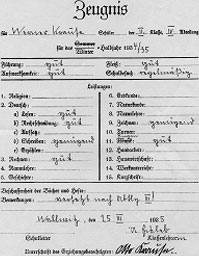 Zeugnis
für Werner Krause Schüler der II Klasse, IV Abteilung
für das Sommer Winter =Halbjahr 1934/35
Führung: gut Fleiß: gut
Aufmerksamkeit: gut Schulbesuch regelmäßig
Leistungen:
1. Religion: 6. Erdkunde:
2. Deutsch: 7. Naturkunde:
a) Lesen: gut 8. Naturlehre:
b) Rechtschreibung: gut 9. Zeichnen: genügend
c) Aufsatz: 10. Turnen:
d) Schreiben: genügend 11. Musik: gut
e) 12. Handarbeit:
3. Rechnen: gut 13. Hauswirtschaft:
4. Raumlehre: 14. Werkunterricht:
5. Geschichte: 15. Kurzschrift:
Beschaffenheit der Bücher und Hefte:
Bemerkungen: versetzt nach Abtlg III!
Wallwitz, 25 III 1935
Schulleiter Klassenlehrer
Unterschrift des Erziehungsberechtigten: Otto Krause